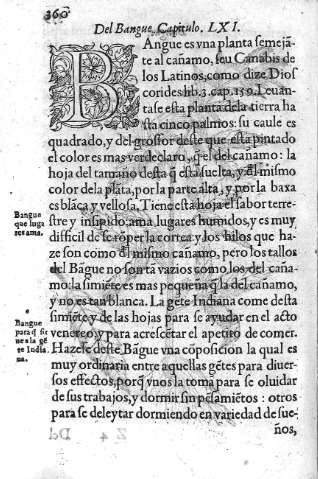 360
Del Bangue, Capitulo. LXI.
BAngue es vna planta semejã
te al cañamo, seu Canabis de
los Latinos, como dize Dios
corides lib. 3. cap. 159. Leuãn
tase esta planta dela tierra ha
sta cinco palmos: su caule es
quadrado, y del grossor deste que esta pintado
el color es mas verdeclaro, q̃ el del cañamo: la
hoja del tamaño desta q̃ està suelta, y del mismo
color dela plata, por la parte alta, y por la baxa
es blãca y vellosa. Tiene esta hoja el sabor terre-
stre y insipido; ama lugares humidos, y es muy
difficil de se rõper la correza y los hilos que ha-
ze son como del mismo cañamo, pero los tallos
del Bãgue no son tã vazios como los del caña-
mo: la simiẽte es mas pequeña q̃ la del cañamo,
y no es tan blanca. La gẽte Indiana come desta
simiẽte y de las hojas para se ayudar en el acto
venereo, y para acrescẽtar el apetito de comer.
Hazese deste Bãgue vna cõposicion la qual es
muy ordinaria entre aquellas gẽtes para diuer-
sos effectos, porq̃ vnos la toma para se oluidar
de sus trabajos, y dormir sin pẽsamiẽtos: otros
para se deleytar dormiendo en variedad de sue-
ños,
Bangue
que luga
res ama.
Bangue
para q̃ sir
ne a la gẽ
te India
na.
Z 4
Del